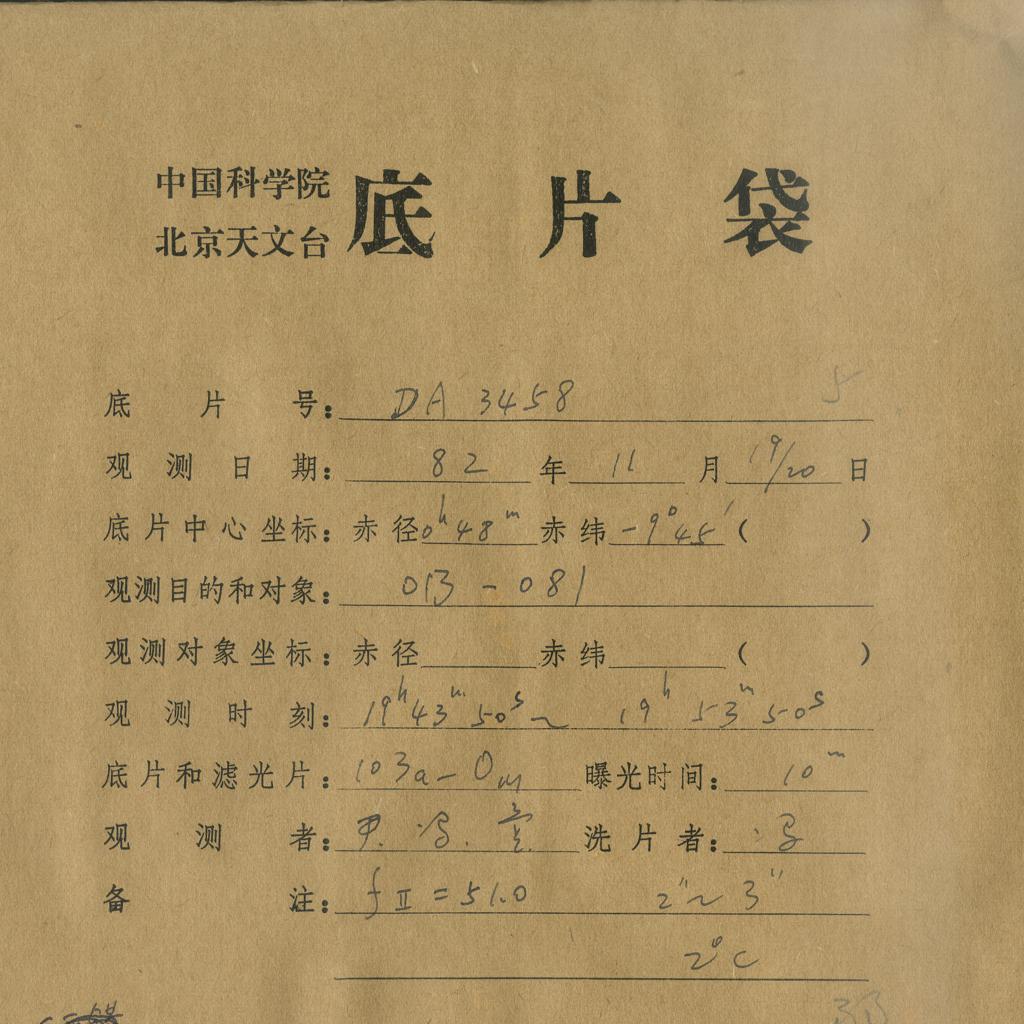 中国科学院
北京天文台
底片袋
5
底片号：DA 3458
观测日期：82年11月19/20日
底片中心坐标：赤径0ʰ48ᵐ赤纬-9°45′（ ）
观测目的和对象：013-081
观测对象坐标：赤径 赤纬 （ ）
观测时刻：19ʰ43ᵐ50ˢ～19ʰ53ᵐ50ˢ
底片和滤光片：103a-O 曝光时间：10ᵐ
观测者：尹.冯. 洗片者：冯
备注：fⅡ=51.0 2″～3″
2°C